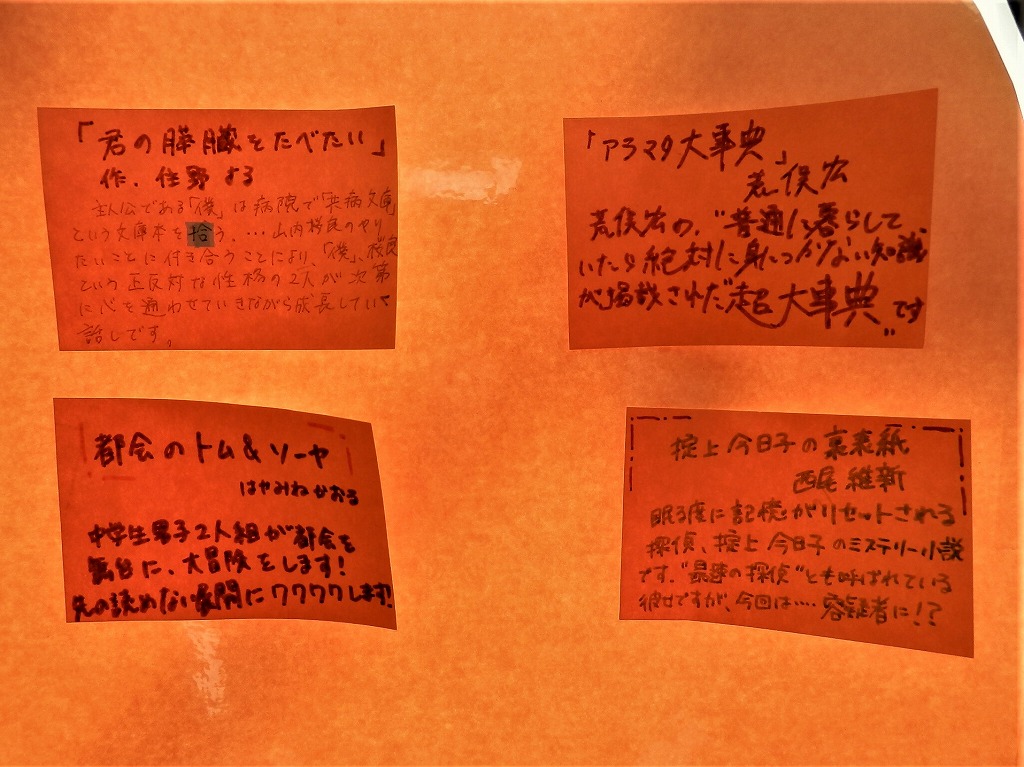 「君の膵臓をたべたい」
作．住野よる
主人公である「僕」は病院で「共病文庫」
という文庫本を拾う。…山内桜良のやり
たいことに付き合うことにより、「僕」、桜良
という正反対な性格の2人が次第
に心を通わせていきながら成長していく
話しです。
「アラマタ大事典」
荒俣宏
荒俣宏の、"普通に暮らして
いたら絶対に身につかない知識
が掲載された超大事典"です
都会のトム&ソーヤ
はやみねかおる
中学生男子2人組が都会を
舞台に、大冒険をします!
先の読めない展開にワクワクします!
掟上今日子の裏表紙
西尾維新
眠る度に記憶がリセットされる
探偵、掟上今日子のミステリー小説
です。"最速の探偵"とも呼ばれている
彼女ですが、今回は……容疑者に!?